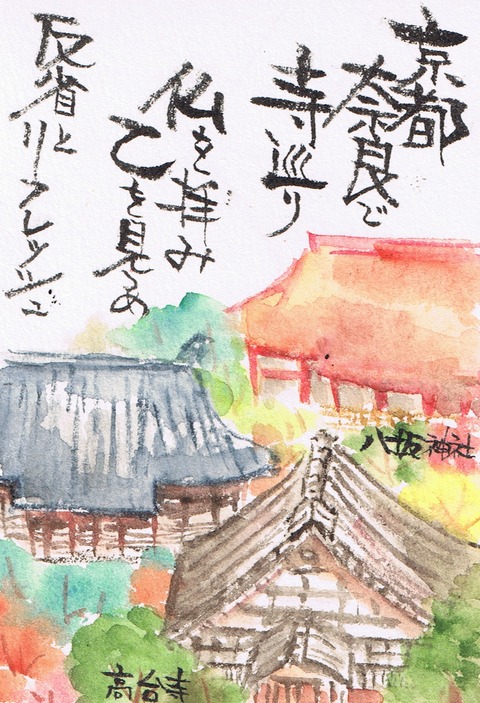 京都
奈良で
寺巡り
仏を拝み
己を見つめ
反省と
リフレッシュ
八坂神社
高台寺